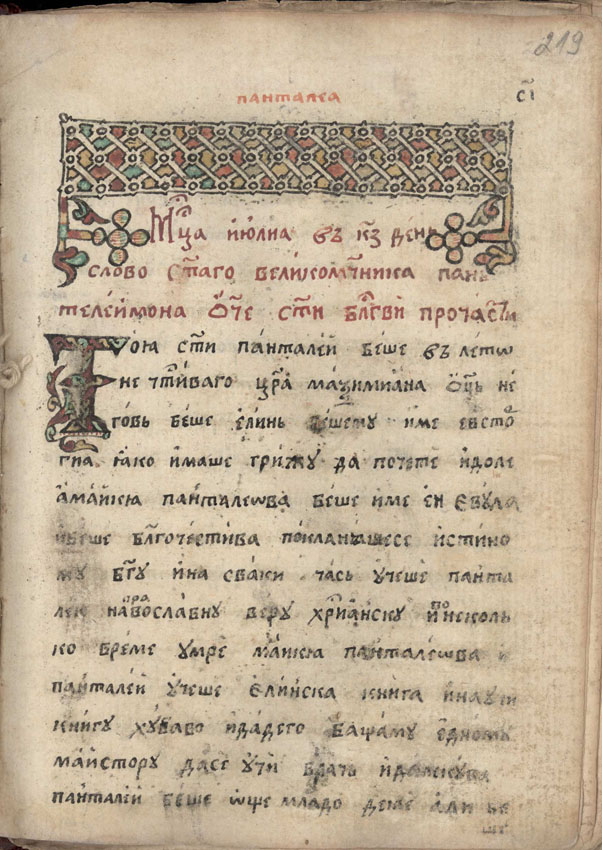 219
панталеа
сı
Мⷭ҇ца июлиа въ кз день
слово стⷭ҇аго великомⷱ҇ника пан
телеимона ѿче стⷭ҇и блгⷭ҇ви прочасти
Тоⷨ стⷭ҇и панталей беше въ лето
не чтⷭ҇иваго цр҃а маѯимиана ѿць не
говь беше елинь беше му име евсто
гиа ꙗко имаше грижу да почете идоле
а майкꙗ панталеѡва беше име ей евула
и беше блгочестива покланꙗшесе истино
му бг҃у и на сваки часъ учеше панта
леꙗ на православну веру хрⷭ҇тианску и по несколь
ко време умре майкꙗ панталеѡва и
панталей учеше елинска книга и научи
книгу хубаво и даде го баща му едному
майстору да се учи врачь и да лекува
панталей беше ѡще младо дете али бе
ше